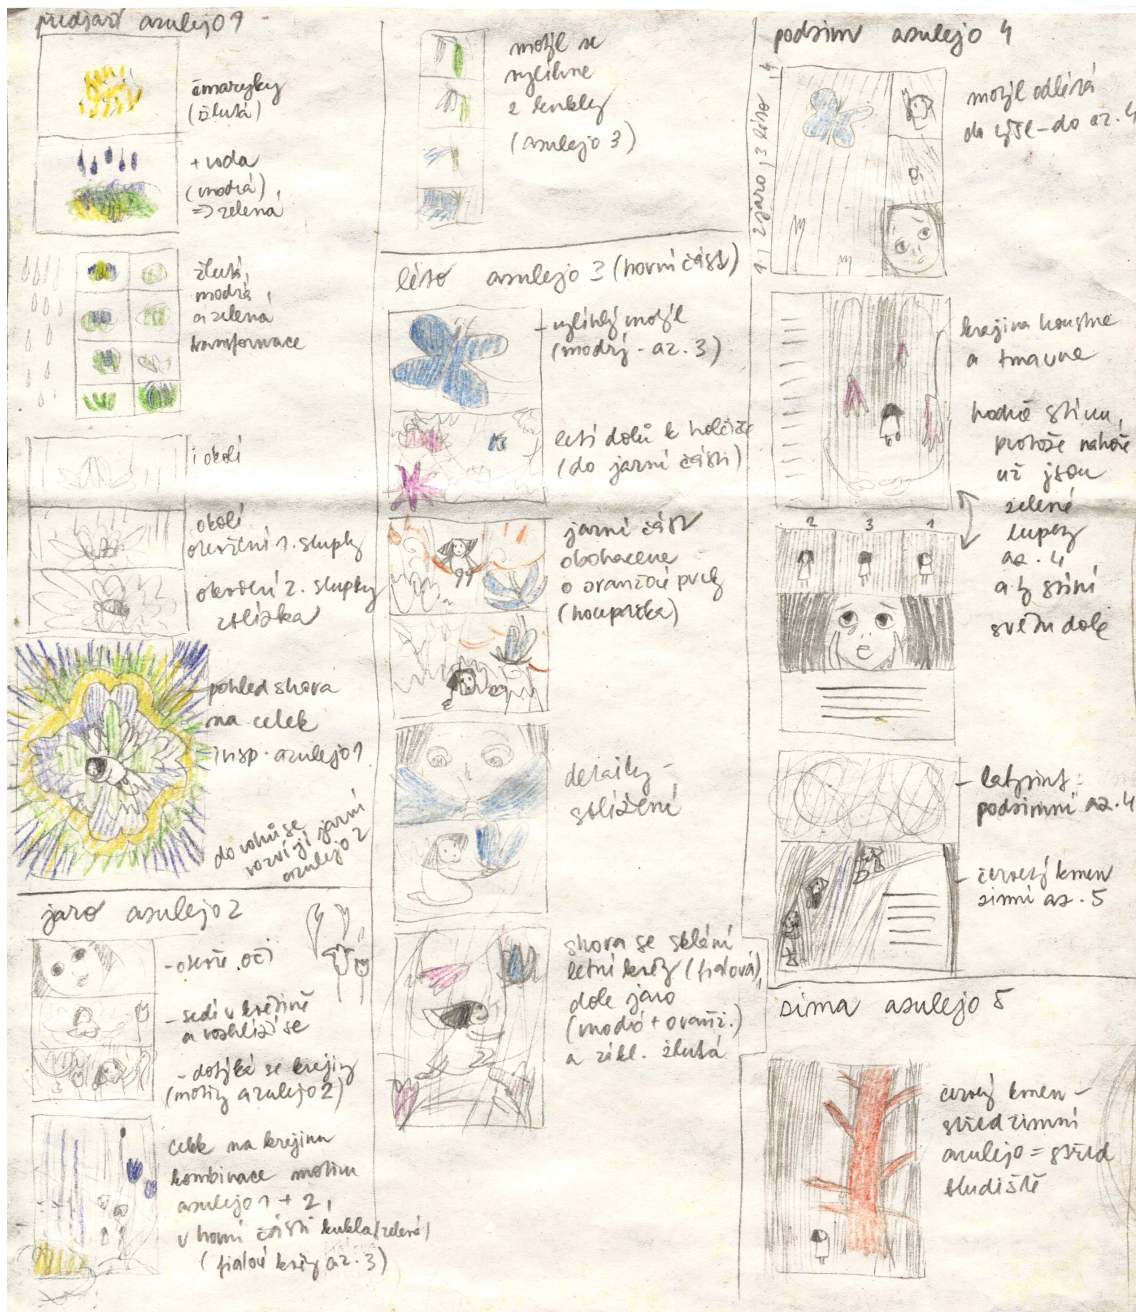 předjaří azulejo 1
čmaryky
(žlutá)
+ voda
(modrá)
=> zelená
žlutá,
modrá
a zelená
transformace
i okolí
okolí
otevření 1. slupky
otevření 2. slupky
zblízka
pohled shora
na celek
insp. azulejo 1
do rohů se
rozvíjí jarní
azulejo 2
jaro azulejo 2
- otevře oči
- sedí v krajině
a rozhlíží se
- dotýká se krajiny
(motivy azulejo 2)
celek na krajinu
kombinace motivu
azulejo 1 + 2,
v horní části kukla (zelená)
(fialové květy az. 3)
motýl se
vylíhne
z kukly
(azulejo 3)
léto azulejo 3 (horní část)
- vylíhlý motýl
(modrý - az. 3)
letí dolů k holčičce
(do jarní části)
jarní část
obohacena
o oranžové prvky
(houpačka)
detaily -
sblížení
shora se sklání
letní květy (fialová),
dole jaro
(modrá + oranž.)
a zákl. žlutá
podzim azulejo 4
1 | 2 jaro | 3 léto | 4
motýl odlétá
do výše - do az. 4
krajina houstne
a tmavne
hodně stínu,
protože nahoře
už jsou
zelené
lupeny
az. 4
a ty stíní
světu dole
2 3 1
- labyrint =
podzimní az. 4
- červený kmen
zimní az. 5
zima azulejo 5
červený kmen -
střed zimní
azulejo = střed
bludiště